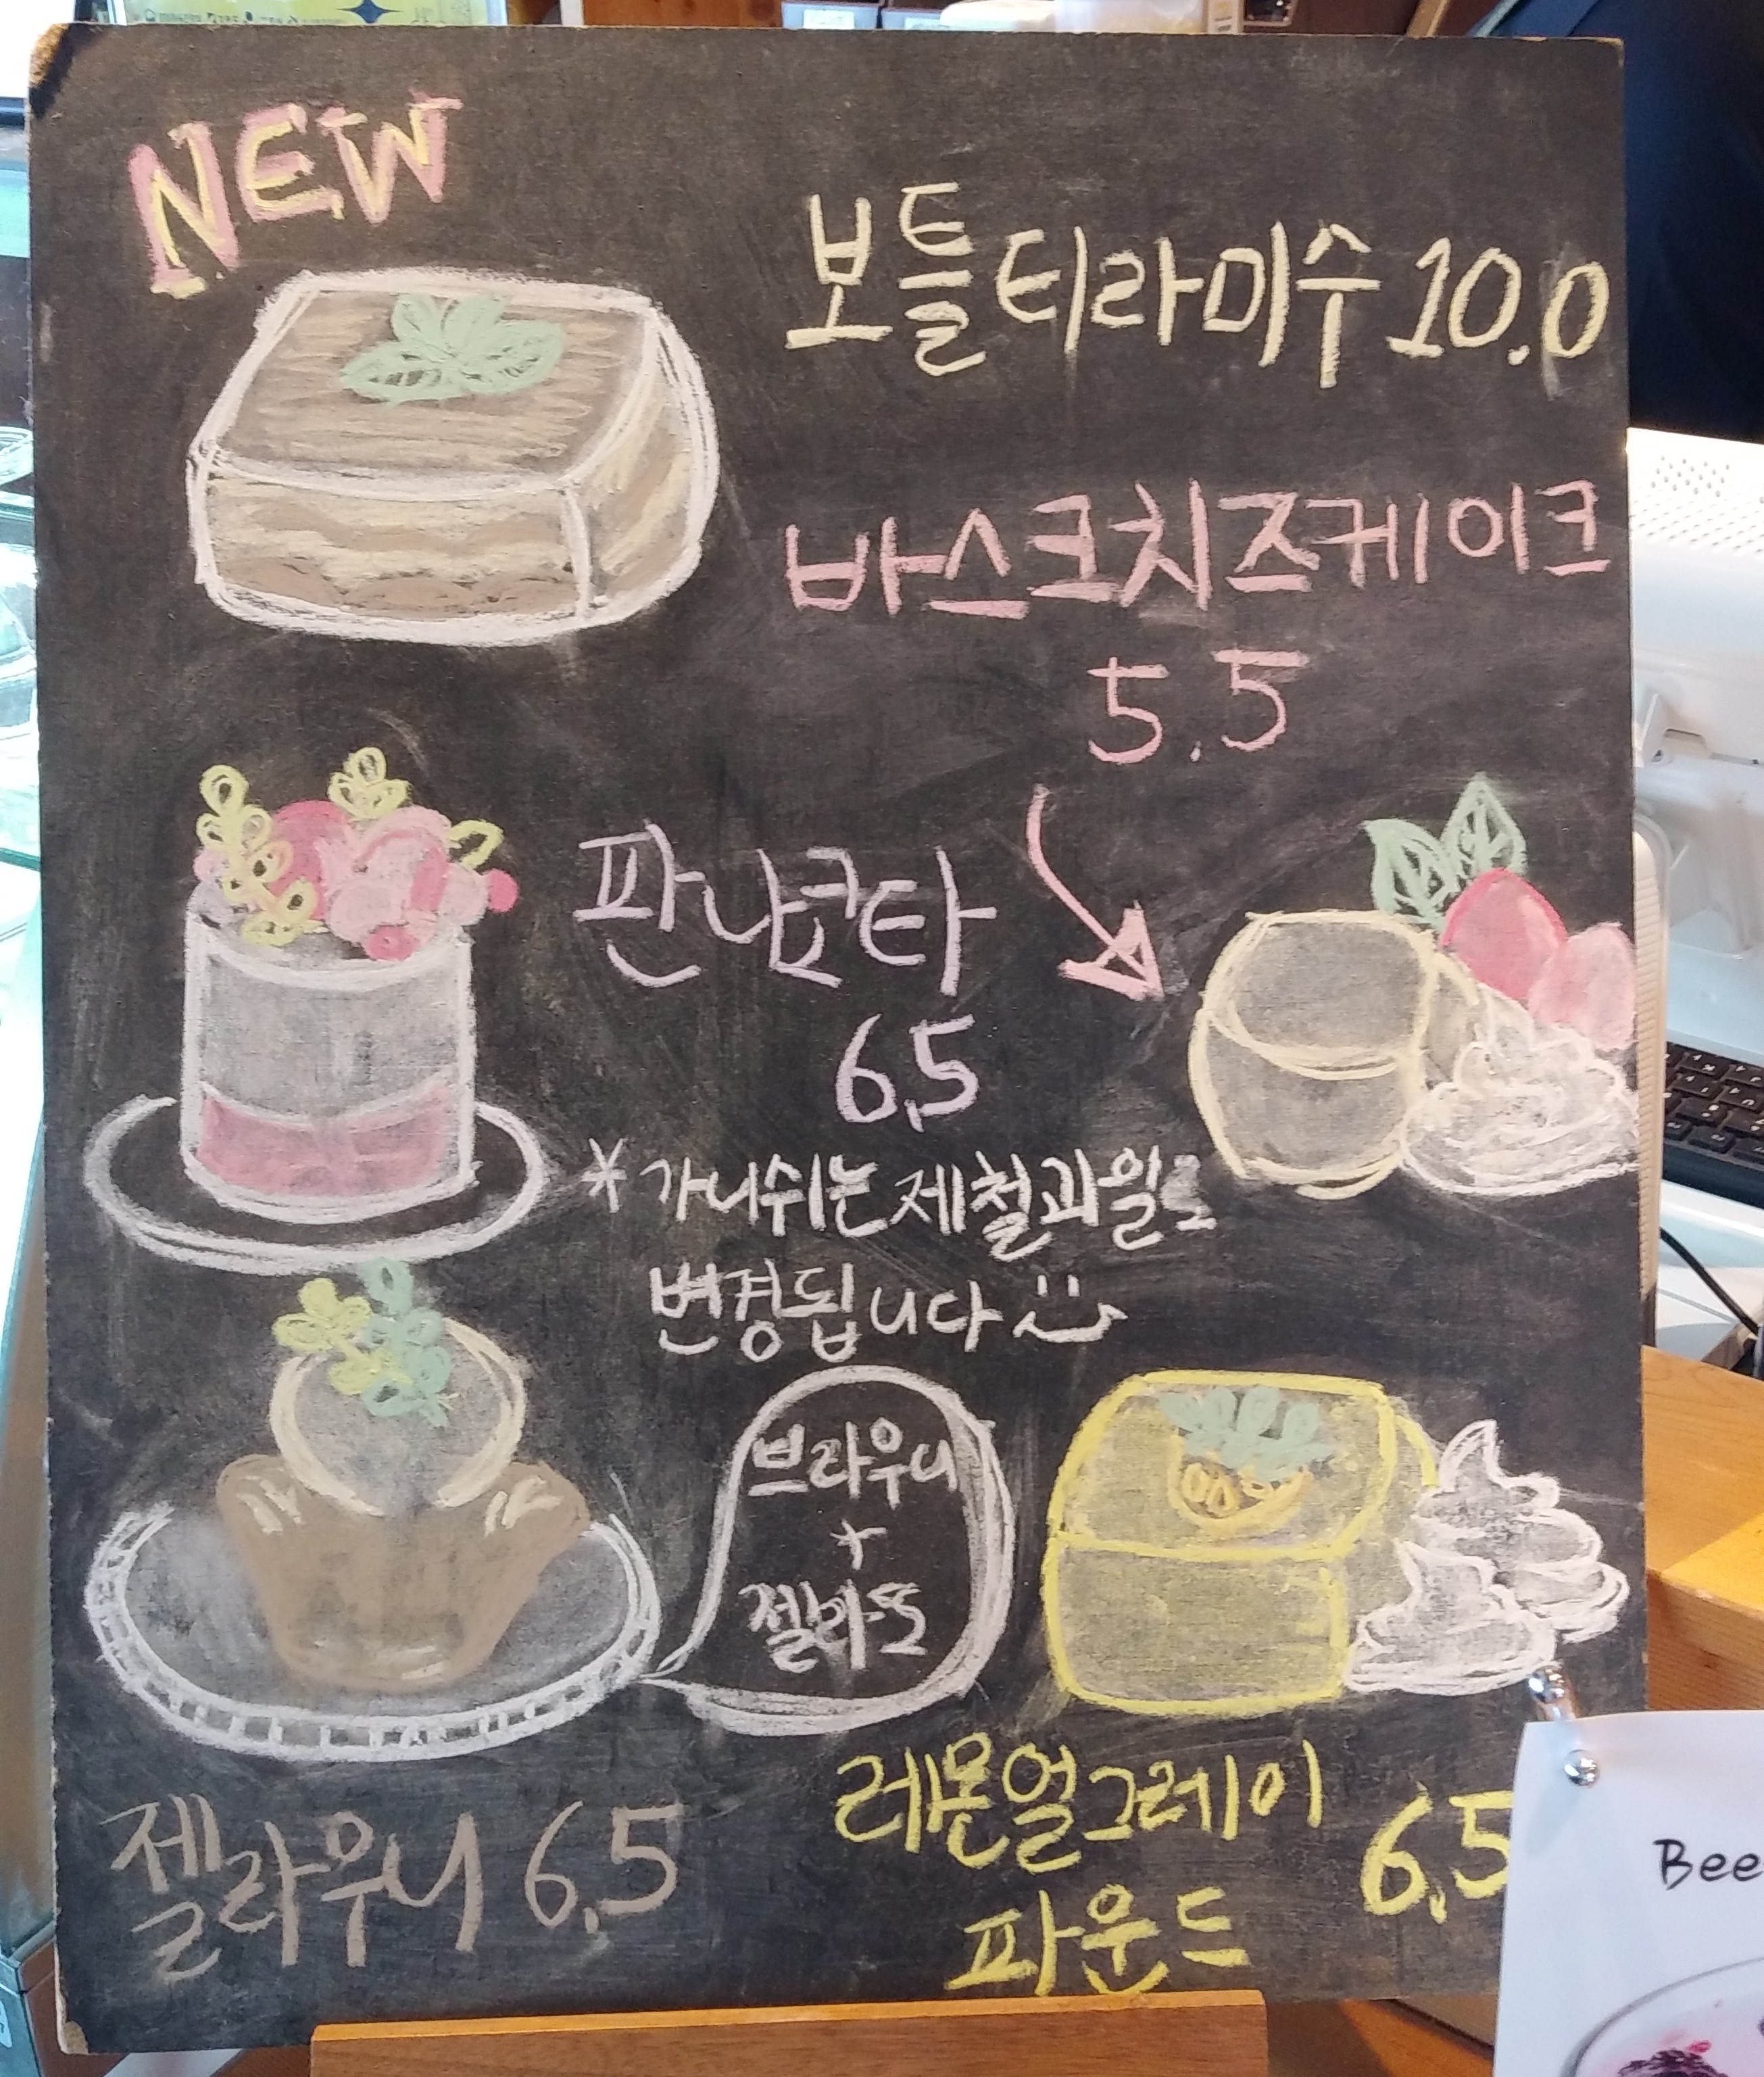 NEW
보틀티라미수 10.0
바스크치즈케이크
5.5
판나코타
6.5
* 가니쉬는 제철과일로
변경됩니다
브라우니
+
젤라또
젤라우니 6.5
레몬얼그레이
파운드
6.5
Bee